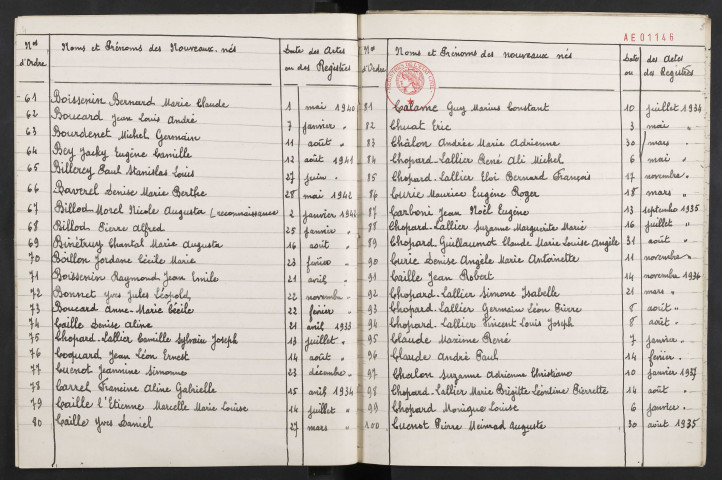 Nos d'Ordre Noms et Prénoms des Nouveaux-nés Date des Actes ou des Registres
61 Boissenin Bernard Marie Claude 1 mai 1940
62 Boucard Jean Louis André 7 janvier "
63 Bourdenet Michel Germain 11 août "
64 Bey Jacky Eugène Camille 12 août 1941
65 Billerey Paul Stanislas Louis 27 juin "
66 Baverel Denise Marie Berthe 28 mai 1942
67 Billod-Morel Nicole Augusta (reconnaissance) 2 janvier 1942
68 Billod Pierre Alfred 25 janvier "
69 Binétruy Chantal Marie Augusta 16 août "
70 Boillon Jordane Cécile Marie 23 février "
71 Boissenin Raymond Jean Emile 21 avril "
72 Bonnet Yves Jules Léopold 22 novembre "
73 Boucard Anne-Marie Cécile 22 février "
74 Caille Denise Aline 21 avril 1933
75 Chopard-Lallier Camille Sylvain Joseph 13 juillet "
76 Coquard Jean Léon Ernest 14 août "
77 Cuenot Jeannine Simonne 23 décembre "
78 Carrel Francine Aline Gabrielle 15 avril 1934
79 Caille l'Etienne Marcelle Marie Louise 14 juillet "
80 Caille Yves Daniel 27 mars "
AE01146
Nos d'Ordre Noms et Prénoms des nouveaux nés Date ou des Actes des Registres
81 Calame Guy Marius Constant 10 juillet 1934
82 Chucat Eric 3 mai "
83 Châlon Andrée Marie Adrienne 30 mars "
84 Chopard-Lallier René Ali Michel 6 mai "
85 Chopard-Lallier Eloi Bernard François 17 novembre "
86 Curie Maurice Eugène Roger 18 mars "
87 Carboni Jean Noël Eugène 13 septembre 1935
88 Chopard-Lallier Suzanne Marguerite Marie 16 juillet "
89 Chopard Guillaumot Claude Marie Louise Angèle 31 août "
90 Curie Denise Angèle Marie Antoinette 11 novembre "
91 Caille Jean Robert 14 novembre 1936
92 Chopard-Lallier Simone Isabelle 21 mars "
93 Chopard-Lallier Germain Léon Pierre 8 août "
94 Chopard-Lallier Vincent Louis Joseph 8 août "
95 Claude Maxime René 7 janvier "
96 Claude André Paul 14 février "
97 Chalon Suzanne Adrienne Christiane 10 janvier 1937
98 Chopard-Lallier Marie Brigitte Léontine Pierrette 14 août "
99 Chopard Monique Louise 6 janvier "
100 Cuenot Pierre Meinrad Auguste 30 août 1935